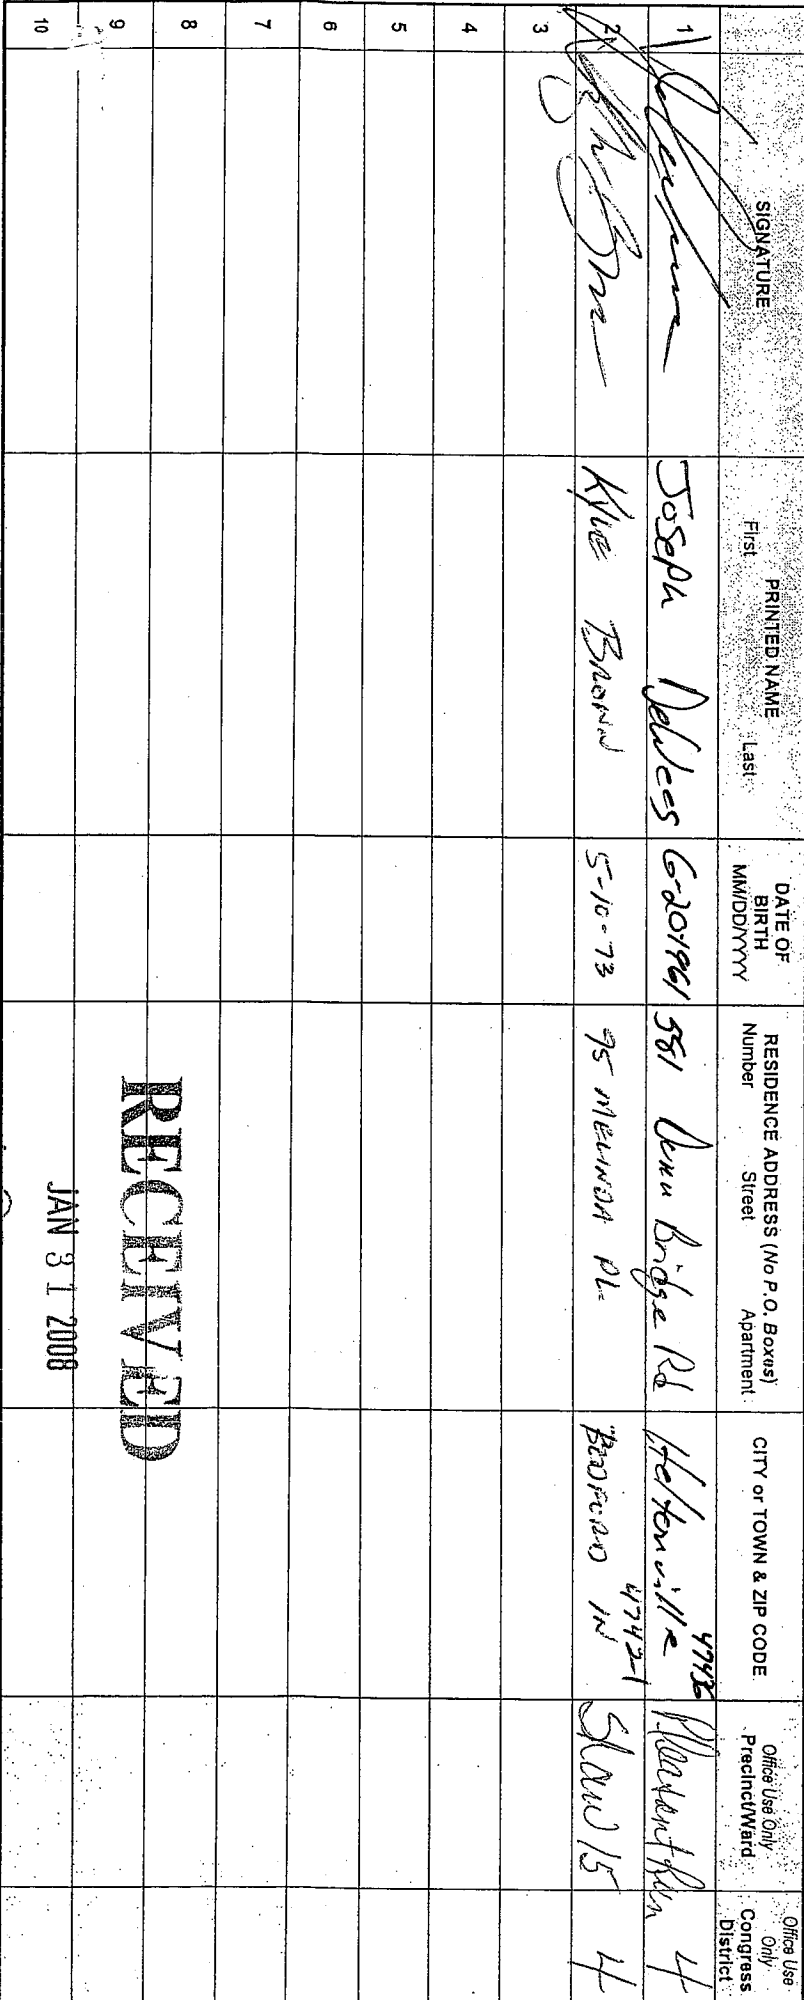 SIGNATURE
PRINTED NAME
First Last
DATE OF BIRTH
MM/DD/YYYY
RESIDENCE ADDRESS (No P.O. Boxes)
Number Street Apartment
CITY or TOWN & ZIP CODE
Office Use Only
Precinct/Ward
Office Use Only
Congress District
1 Joseph DeWees 6-201961 581 Bridge Rd Heltonville 47436 Pleasant Run 4
2 Kylie Brown 5-10-73 95 MELINDA PL BEDFORD IN 47421 Shaw 15 4
3
4
5
6
7
8
9
10
RECEIVED
JAN 31 2008